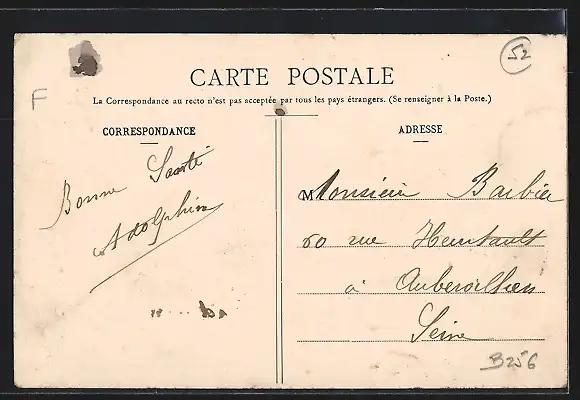 52
F
CARTE POSTALE
La Correspondance au recto n'est pas acceptée par tous les pays étrangers. (Se renseigner à la Poste.)
CORRESPONDANCE
Bonne Santé
Adolphine
ADRESSE
Monsieur Barbier
60 rue Heurtault
à Aubervilliers
Seine
B256